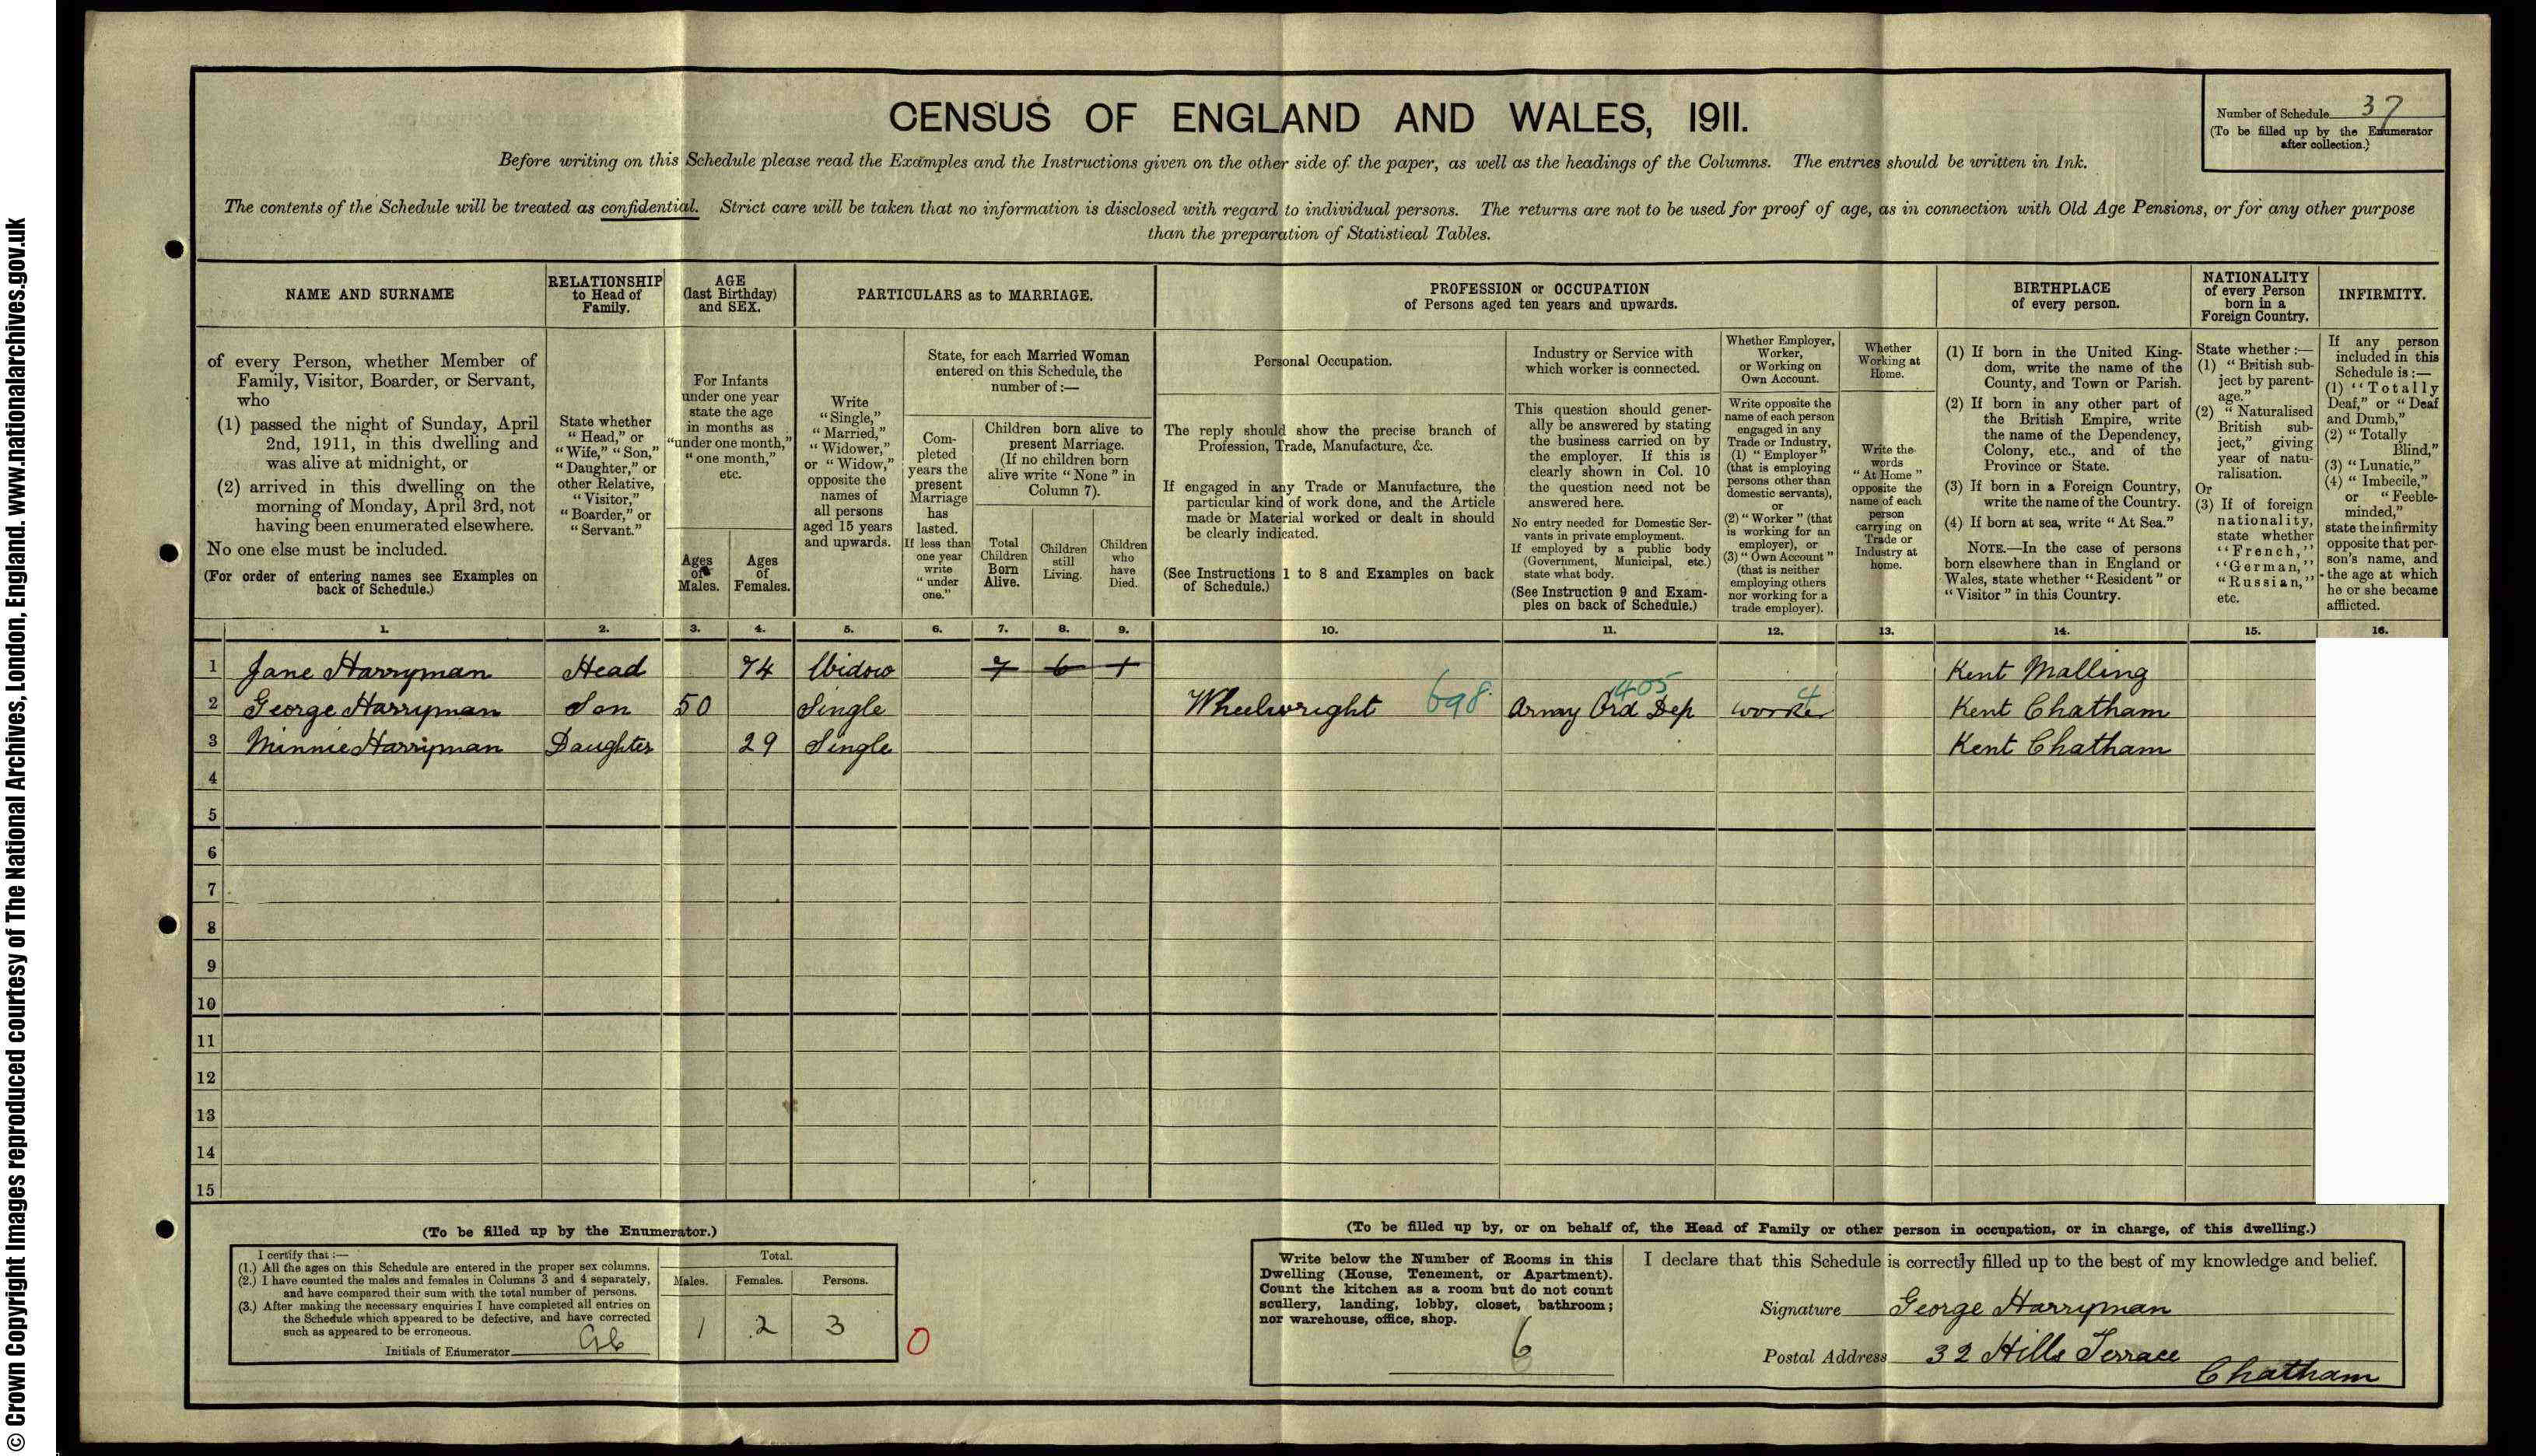 © Crown Copyright Images reproduced courtesy of The National Archives, London, England. www.nationalarchives.gov.uk
CENSUS OF ENGLAND AND WALES, 1911.
Number of Schedule 37
(To be filled up by the Enumerator
after collection.)
Before writing on this Schedule please read the Examples and the Instructions given on the other side of the paper, as well as the headings of the Columns. The entries should be written in Ink.
The contents of the Schedule will be treated as confidential. Strict care will be taken that no information is disclosed with regard to individual persons. The returns are not to be used for proof of age, as in connection with Old Age Pensions, or for any other purpose
than the preparation of Statistical Tables.
NAME AND SURNAME
RELATIONSHIP
to Head of
Family.
AGE
(last Birthday)
and SEX.
PARTICULARS as to MARRIAGE.
PROFESSION or OCCUPATION
of Persons aged ten years and upwards.
BIRTHPLACE
of every person.
NATIONALITY
of every Person
born in a
Foreign Country.
INFIRMITY.
of every Person, whether Member of
Family, Visitor, Boarder, or Servant,
who
(1) passed the night of Sunday, April
2nd, 1911, in this dwelling and
was alive at midnight, or
(2) arrived in this dwelling on the
morning of Monday, April 3rd, not
having been enumerated elsewhere.
No one else must be included.
(For order of entering names see Examples on
back of Schedule.)
State whether
"Head," or
"Wife," "Son,"
"Daughter," or
other Relative,
"Visitor,"
"Boarder," or
"Servant."
For Infants
under one year
state the age
in months as
"under one month,"
"one month,"
etc.
Ages
of
Males.
Ages
of
Females.
Write
"Single,"
"Married,"
"Widower,"
or "Widow,"
opposite the
names of
all persons
aged 15 years
and upwards.
State, for each Married Woman
entered on this Schedule, the
number of:—
Com-
pleted
years the
present
Marriage
has
lasted.
If less than
one year
write
"under
one."
Children born alive to
present Marriage.
(If no children born
alive write "None" in
Column 7).
Total
Children
Born
Alive.
Children
still
Living.
Children
who
have
Died.
Personal Occupation.
The reply should show the precise branch of
Profession, Trade, Manufacture, &c.
If engaged in any Trade or Manufacture, the
particular kind of work done, and the Article
made or Material worked or dealt in should
be clearly indicated.
(See Instructions 1 to 8 and Examples on back
of Schedule.)
Industry or Service with
which worker is connected.
This question should gener-
ally be answered by stating
the business carried on by
the employer. If this is
clearly shown in Col. 10
the question need not be
answered here.
No entry needed for Domestic Ser-
vants in private employment.
If employed by a public body
(Government, Municipal, etc.)
state what body.
(See Instruction 9 and Exam-
ples on back of Schedule.)
Whether Employer,
Worker,
or Working on
Own Account.
Write opposite the
name of each person
engaged in any
Trade or Industry,
(1) "Employer"
(that is employing
persons other than
domestic servants),
or
(2) "Worker" (that
is working for an
employer), or
(3) "Own Account"
(that is neither
employing others
nor working for a
trade employer).
Whether
Working at
Home.
Write the
words
"At Home"
opposite the
name of each
person
carrying on
Trade or
Industry at
home.
(1) If born in the United King-
dom, write the name of the
County, and Town or Parish.
(2) If born in any other part of
the British Empire, write
the name of the Dependency,
Colony, etc., and of the
Province or State.
(3) If born in a Foreign Country,
write the name of the Country.
(4) If born at sea, write "At Sea."
NOTE.—In the case of persons
born elsewhere than in England or
Wales, state whether "Resident" or
"Visitor" in this Country.
State whether:—
(1) "British sub-
ject by parent-
age."
(2) "Naturalised
British sub-
ject," giving
year of natu-
ralisation.
Or
(3) If of foreign
nationality,
state whether
"French,"
"German,"
"Russian,"
etc.
If any person
included in this
Schedule is:—
(1) "Totally
Deaf," or "Deaf
and Dumb,"
(2) "Totally
Blind,"
(3) "Lunatic,"
(4) "Imbecile,"
or "Feeble-
minded,"
state the infirmity
opposite that per-
son's name, and
the age at which
he or she became
afflicted.
1. 2. 3. 4. 5. 6. 7. 8. 9. 10. 11. 12. 13. 14. 15. 16.
1 Jane Harryman Head 74 Widow 7 6 1 Kent Malling
2 George Harryman Son 50 Single Wheelwright 698 Army Ord Dep 405 worker 4 Kent Chatham
3 Minnie Harryman Daughter 29 Single Kent Chatham
4
5
6
7
8
9
10
11
12
13
14
15
(To be filled up by the Enumerator.)
I certify that:—
(1.) All the ages on this Schedule are entered in the proper sex columns.
(2.) I have counted the males and females in Columns 3 and 4 separately,
and have compared their sum with the total number of persons.
(3.) After making the necessary enquiries I have completed all entries on
the Schedule which appeared to be defective, and have corrected
such as appeared to be erroneous.
Initials of Enumerator
Total.
Males. Females. Persons.
1 2 3
0
(To be filled up by, or on behalf of, the Head of Family or other person in occupation, or in charge, of this dwelling.)
Write below the Number of Rooms in this
Dwelling (House, Tenement, or Apartment).
Count the kitchen as a room but do not count
scullery, landing, lobby, closet, bathroom;
nor warehouse, office, shop.
6
I declare that this Schedule is correctly filled up to the best of my knowledge and belief.
Signature George Harryman
Postal Address 32 Hills Terrace
Chatham